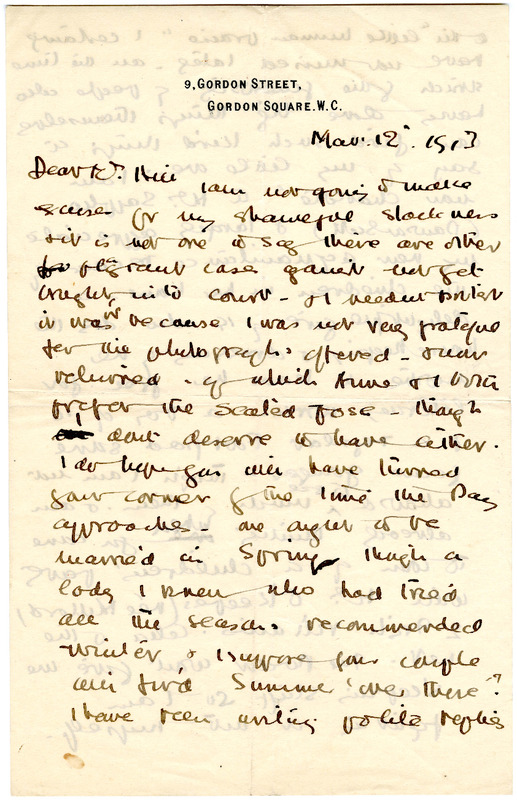 9, GORDON STREET,
GORDON SQUARE. W.C.
Mar. 12. 1913
Dear Mr. Hill I am not going to make
excuses for my shameful slackness
& it is not one to say there are other
flagrant cases against not yet
brought into court - & I needn't
it wasn't because I was not very grateful
for the photographs offered - & now
returned - of which Anne & I both
prefer the Seated pose - though
don't deserve to have either.
I do hope you will have turned
your corner by the time the Day
approaches - one ought to be
married in Spring, though a
lady I knew who had tried
all the seasons recommended
Winter & I suppose your couple
will find Summer 'over there'?
I have been writing polite replies